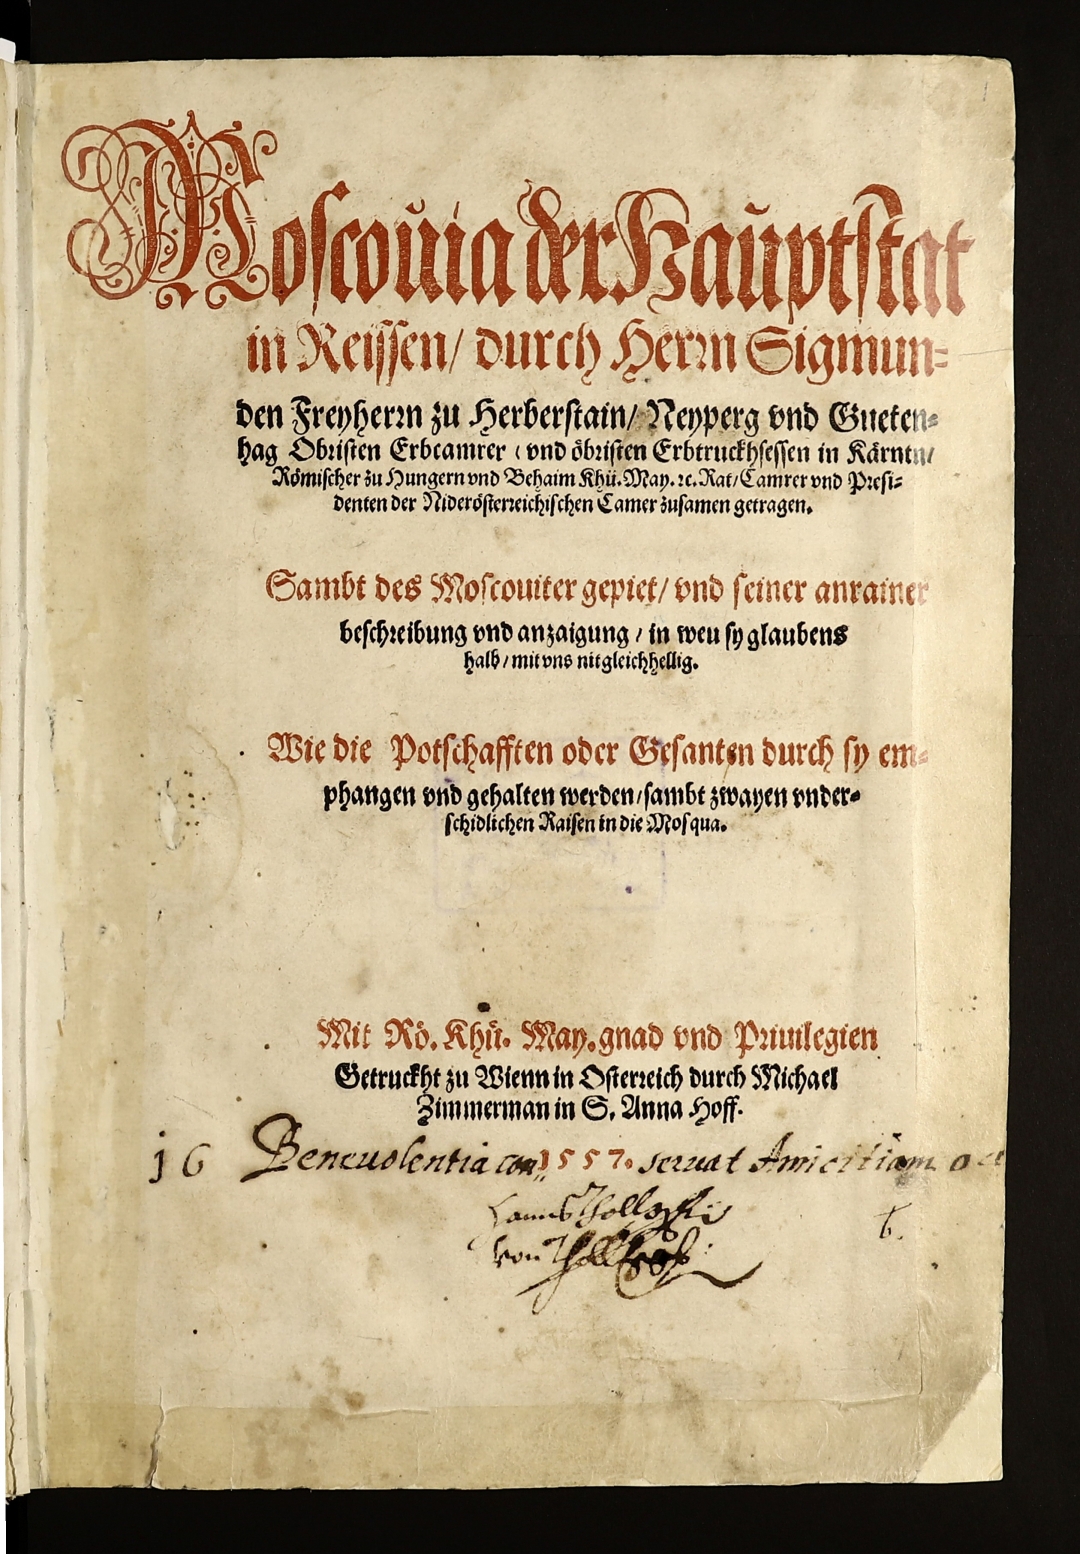 Moscouia der Hauptstat
in Reissen/ durch Herrn Sigmun-
den Freyherrn zu Herberstain/ Neyperg vnd Gueten-
hag Obristen Erbcamrer / vnd öbristen Erbtruckhsessen in Kärntn/
Römischer zu Hungern vnd Behaim Khü. May. ꝛc. Rat/ Camrer vnd Presi-
denten der Niderösterreichischen Camer zusamen getragen.
Sambt des Moscouiter gepiet/ vnd seiner anrainer
beschreibung vnd anzaigung / in weu sy glaubens
halb / mit vns nit gleichhellig.
Wie die Potschafften oder Gesanten durch sy em-
phangen vnd gehalten werden/ sambt zwayen vnder-
schidlichen Raisen in die Mosqua.
Mit Rö. Khü. May. gnad vnd Priuilegien
Getruckht zu Wienn in Osterreich durch Michael
Zimmerman in S. Anna Hoff.
1557.
16 Beneuolentia con seruat Amicitiam
von